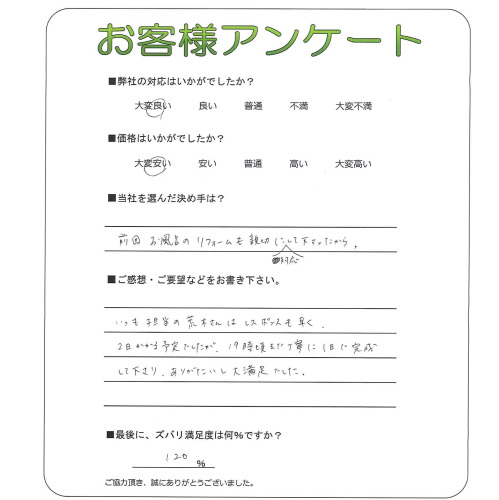 お客様アンケート
■弊社の対応はいかがでしたか？
大変良い 良い 普通 不満 大変不満
■価格はいかがでしたか？
大変安い 安い 普通 高い 大変高い
■当社を選んだ決め手は？
前回 お風呂の リフォームも 親切にして下さったから。
対応
■ご感想・ご要望などをお書き下さい。
いつも 担当の 荒木さんは レスポンスも 早く、
2日かかる予定でしたが、19時頃まで丁寧に1日で完成
して下さり、ありがたいし大満足でした。
■最後に、ズバリ満足度は何%ですか？
120 %
ご協力頂き、誠にありがとうございました。